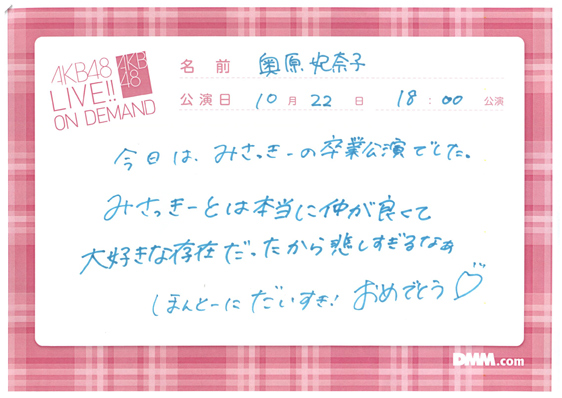 AKB48
LIVE!!
ON DEMAND
AKB
48
名前 奥原妃奈子
公演日 10月22日 18:00公演
今日は、みさっきーの卒業公演でした。
みさっきーとは本当に仲が良くて
大好きな存在だったから悲しすぎるなぁ
ほんとーにだいすき!おめでとう♡
DMM.com